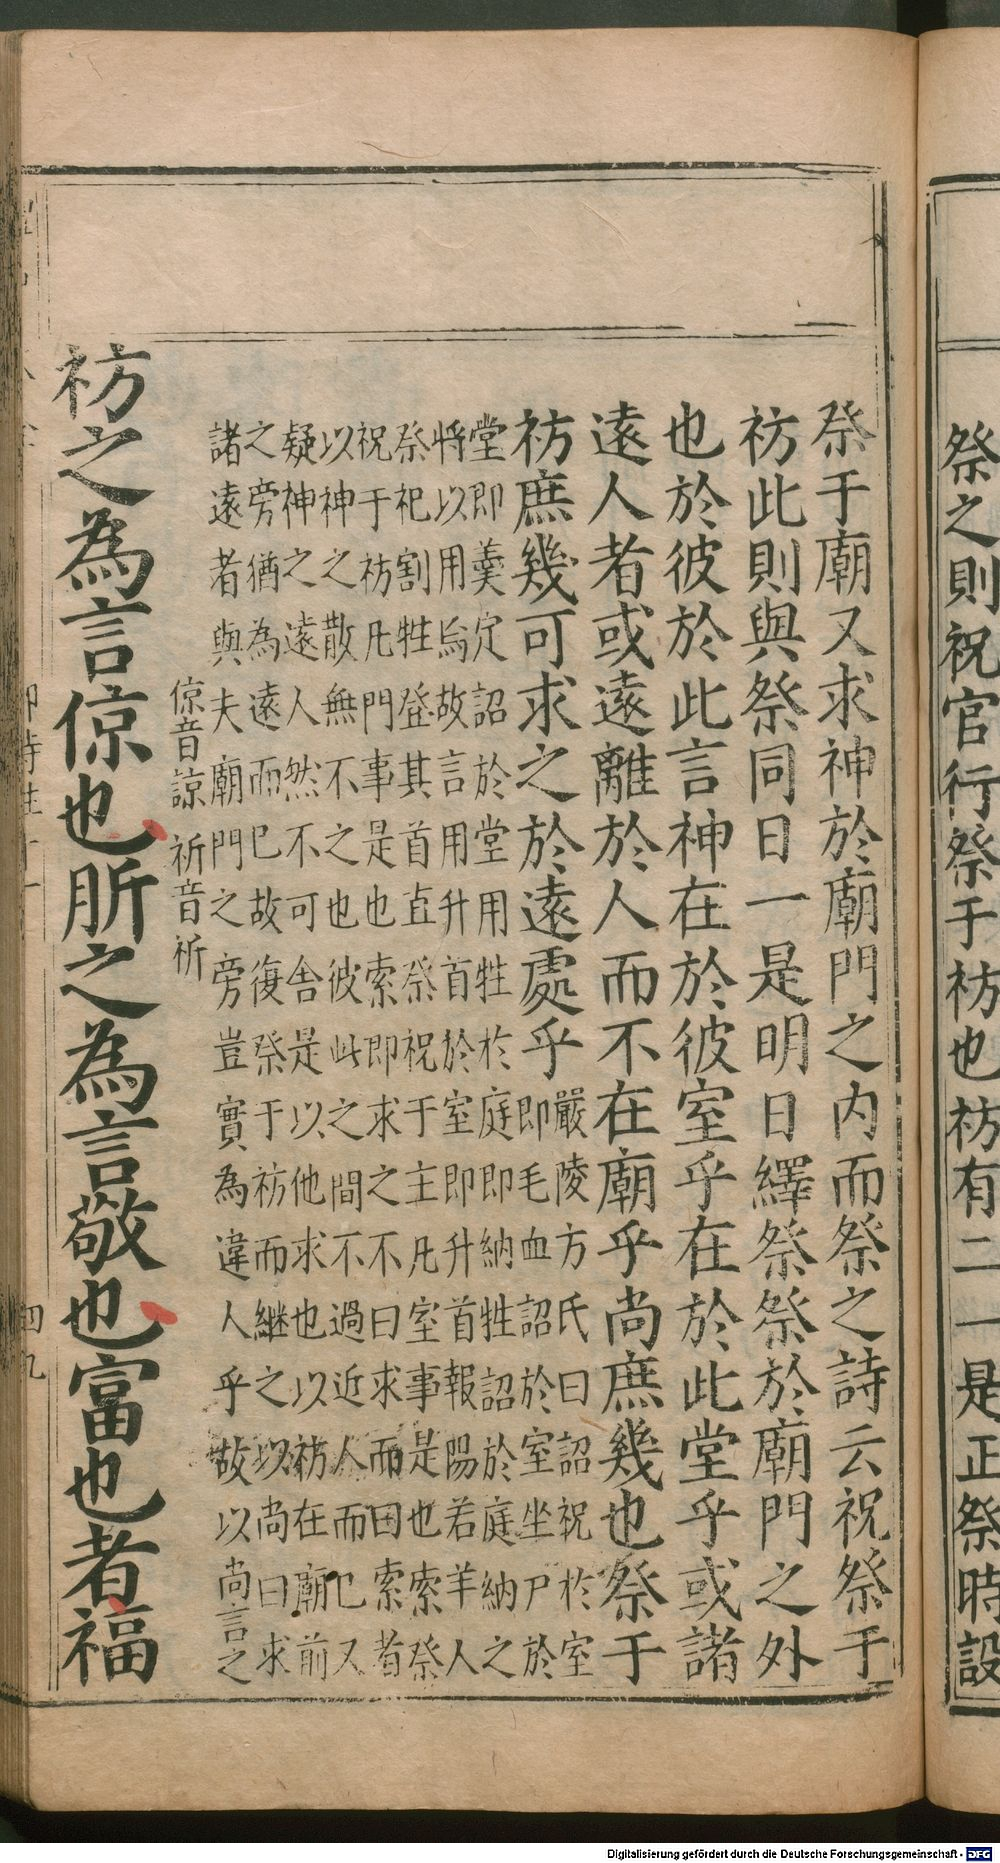 祭之則祝官行祭于祊也祊有二一是正祭時設
祭于廟又求神於廟門之內而祭之詩云祝祭于
祊此則與祭同日一是明日繹祭祭於廟門之外
也於彼於此言神在於彼室乎在於此堂乎或諸
遠人者或遠離於人而不在廟乎尚庶幾也祭于
祊庶幾可求之於遠處乎
嚴陵方氏曰詔祝於室
即毛血詔於室坐尸於
堂即羮定詔於堂用牲於庭即納牲詔於庭納之
將以用焉故言用升首於室即升首報陽若羊人
祭祀割牲登其首直祭祝于主凡室事是也索祭
祝于祊凡門事是也索即求之不曰求而曰索者
以神之散無不之也彼此之間不過近人而已又
疑神之遠人然不可舍是以他求也以祊在廟前
之旁猶為遠而已故復祭于祊而継之以尚曰求
諸遠者與夫廟門之旁豈實為違人乎故以尚言之
倞音諒 祈音祈
祊之為言倞也肵之為言敬也富也者福
四九
Digitalisierung gefördert durch die Deutsche Forschungsgemeinschaft - DFG